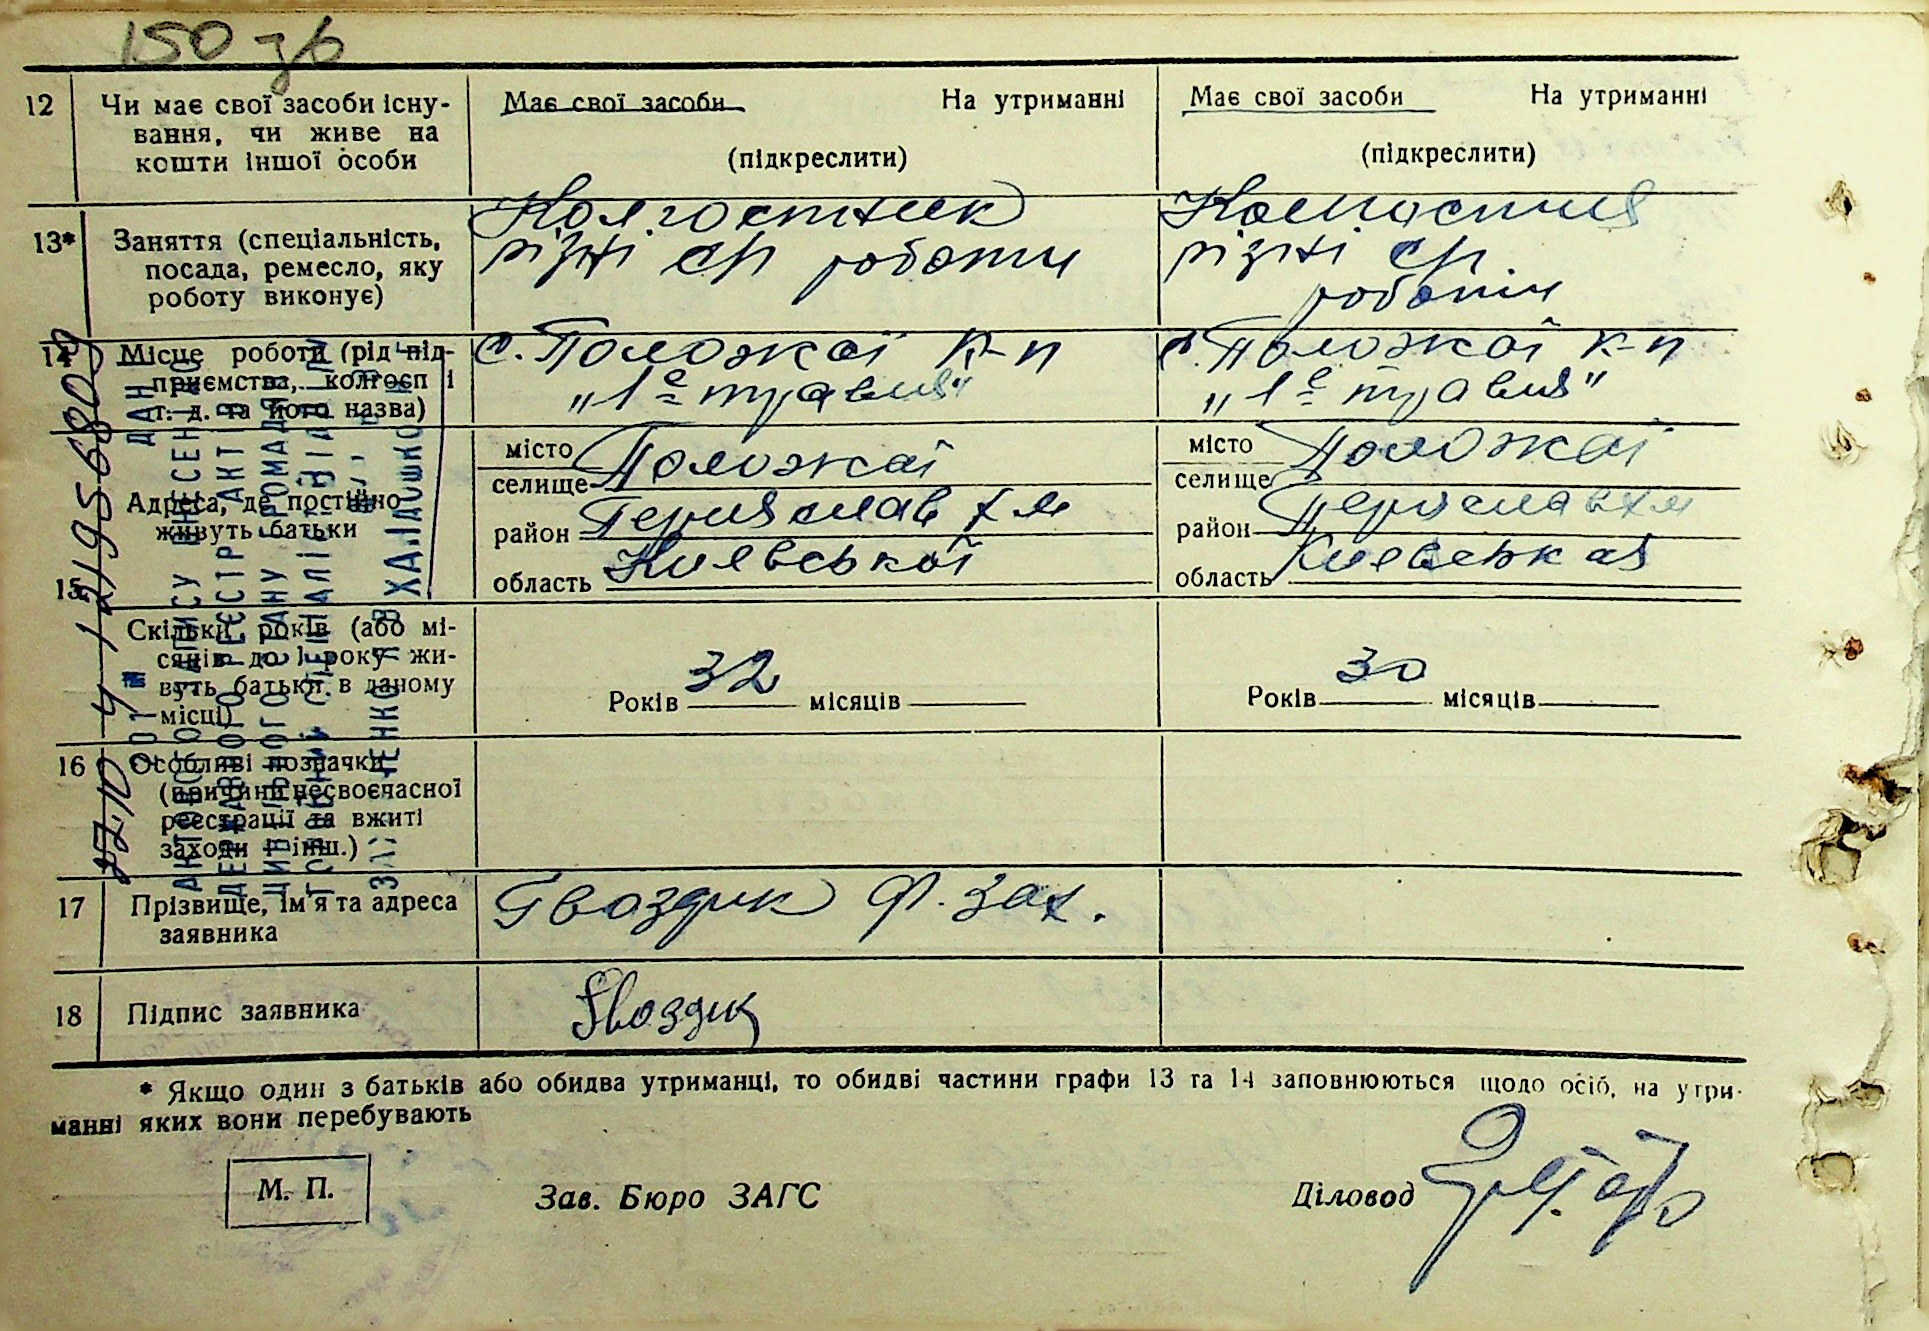 150 зв
12 Чи має свої засоби існу-
вання, чи живе на
кошти іншої особи
Має свої засоби На утриманні
(підкреслити)
Має свої засоби На утриманні
(підкреслити)
13* Заняття (спеціальність,
посада, ремесло, яку
роботу виконує)
Колгоспник
різні с/г роботи
різні с/г
роботи
14 Місце роботи (рід під-
приємства, колгосп і
т. д. та його назва)
с. Положаї к-п
„1е травня"
с. Положаї к-п
„1е травня"
15 Адреса, де постійно
живуть батьки
місто Положаї
селище
район Переяслав Хм
область Київської
місто Положаї
селище
район Переяслав Хм
область Київська
Скільки років (або мі-
сяців до 1 року жи-
вуть батьки в даному
місці)
Років 32 місяців
Років 30 місяців
16 Особливі позначки
(причини несвоєчасної
реєстрації та вжиті
заходи і інш.)
17 Прізвище, ім'я та адреса
заявника
Гвоздик Ф. Зах.
18 Підпис заявника
Гвоздик
* Якщо один з батьків або обидва утриманці, то обидві частини графи 13 та 14 заповнюються щодо осіб, на утри-
манні яких вони перебувають
М. П.
Зав. Бюро ЗАГС
Діловод
АКТОВОГО ЗАПИСУ ВНЕСЕНІ ДО
ДЕРЖАВНОГО РЕЄСТРУ АКТІВ
ЦИВІЛЬНОГО СТАНУ ГРОМАДЯН